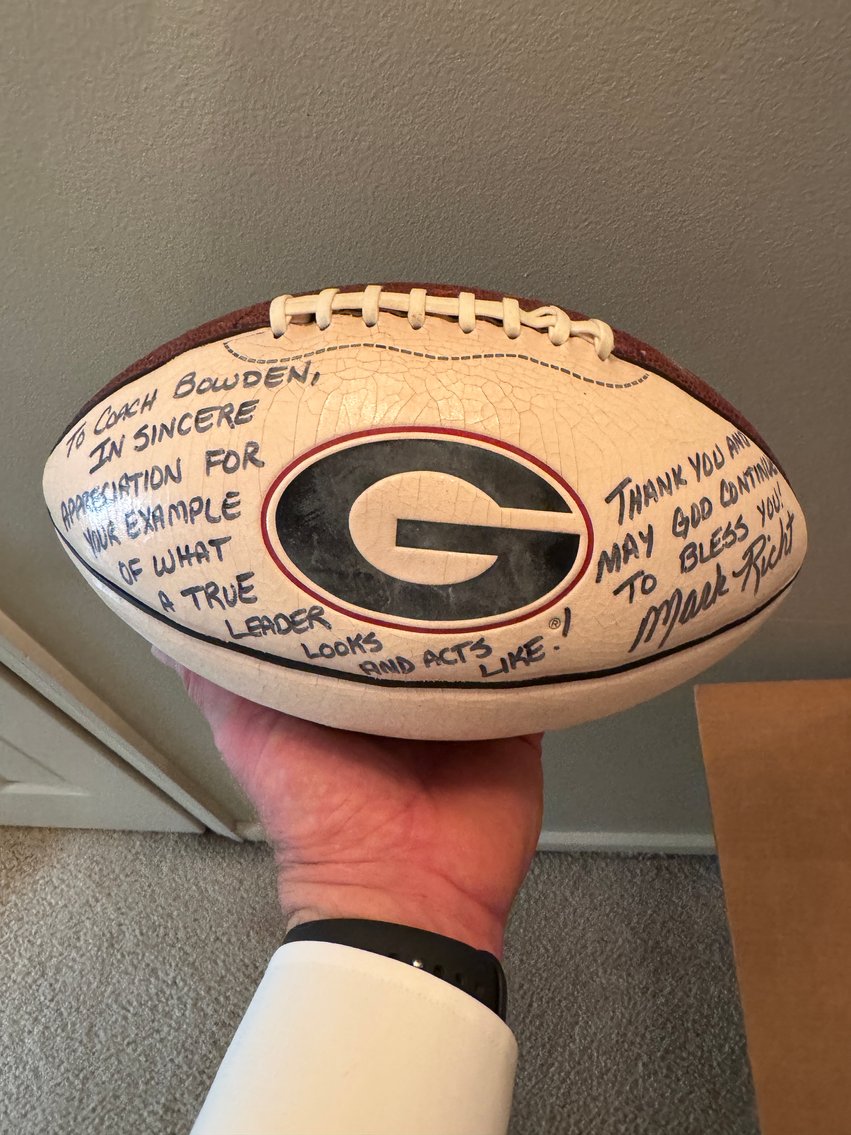 TO COACH BOWDEN,
IN SINCERE
APPRECIATION FOR
YOUR EXAMPLE
OF WHAT
A TRUE
LEADER
LOOKS
AND ACTS
LIKE.!
G
®
THANK YOU AND
MAY GOD CONTINUE
TO BLESS YOU!
Mark Richt